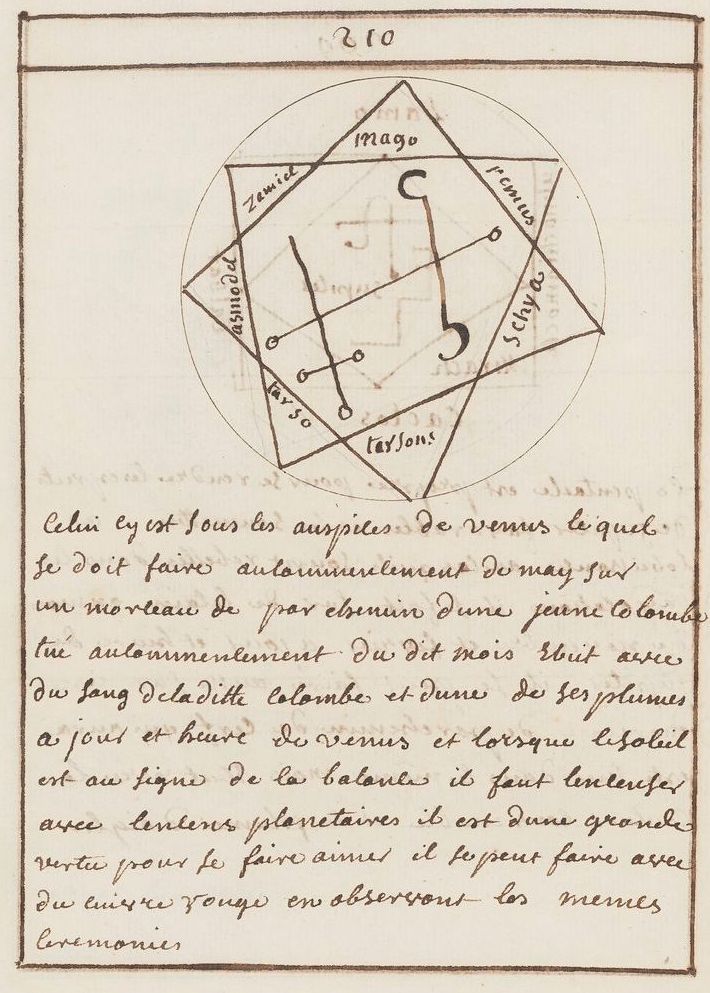 210
mago
zamiel
remus
asmodel
schya
tarso
tarsons
Celui cy est sous les auspices de venus lequel
se doit faire au commencement de may sur
un morceau de parchemin dune jeune Colombe
tué au commencement du dit mois avec
du sang de laditte colombe et dune de ses plumes
a jour et heure de venus et lorsque le soleil
est au signe de la balance il faut lencenser
avec lencens planetaires il est dune grande
vertu pour se faire aimer il se peut faire avec
du cuivre rouge en observant les memes
ceremonies